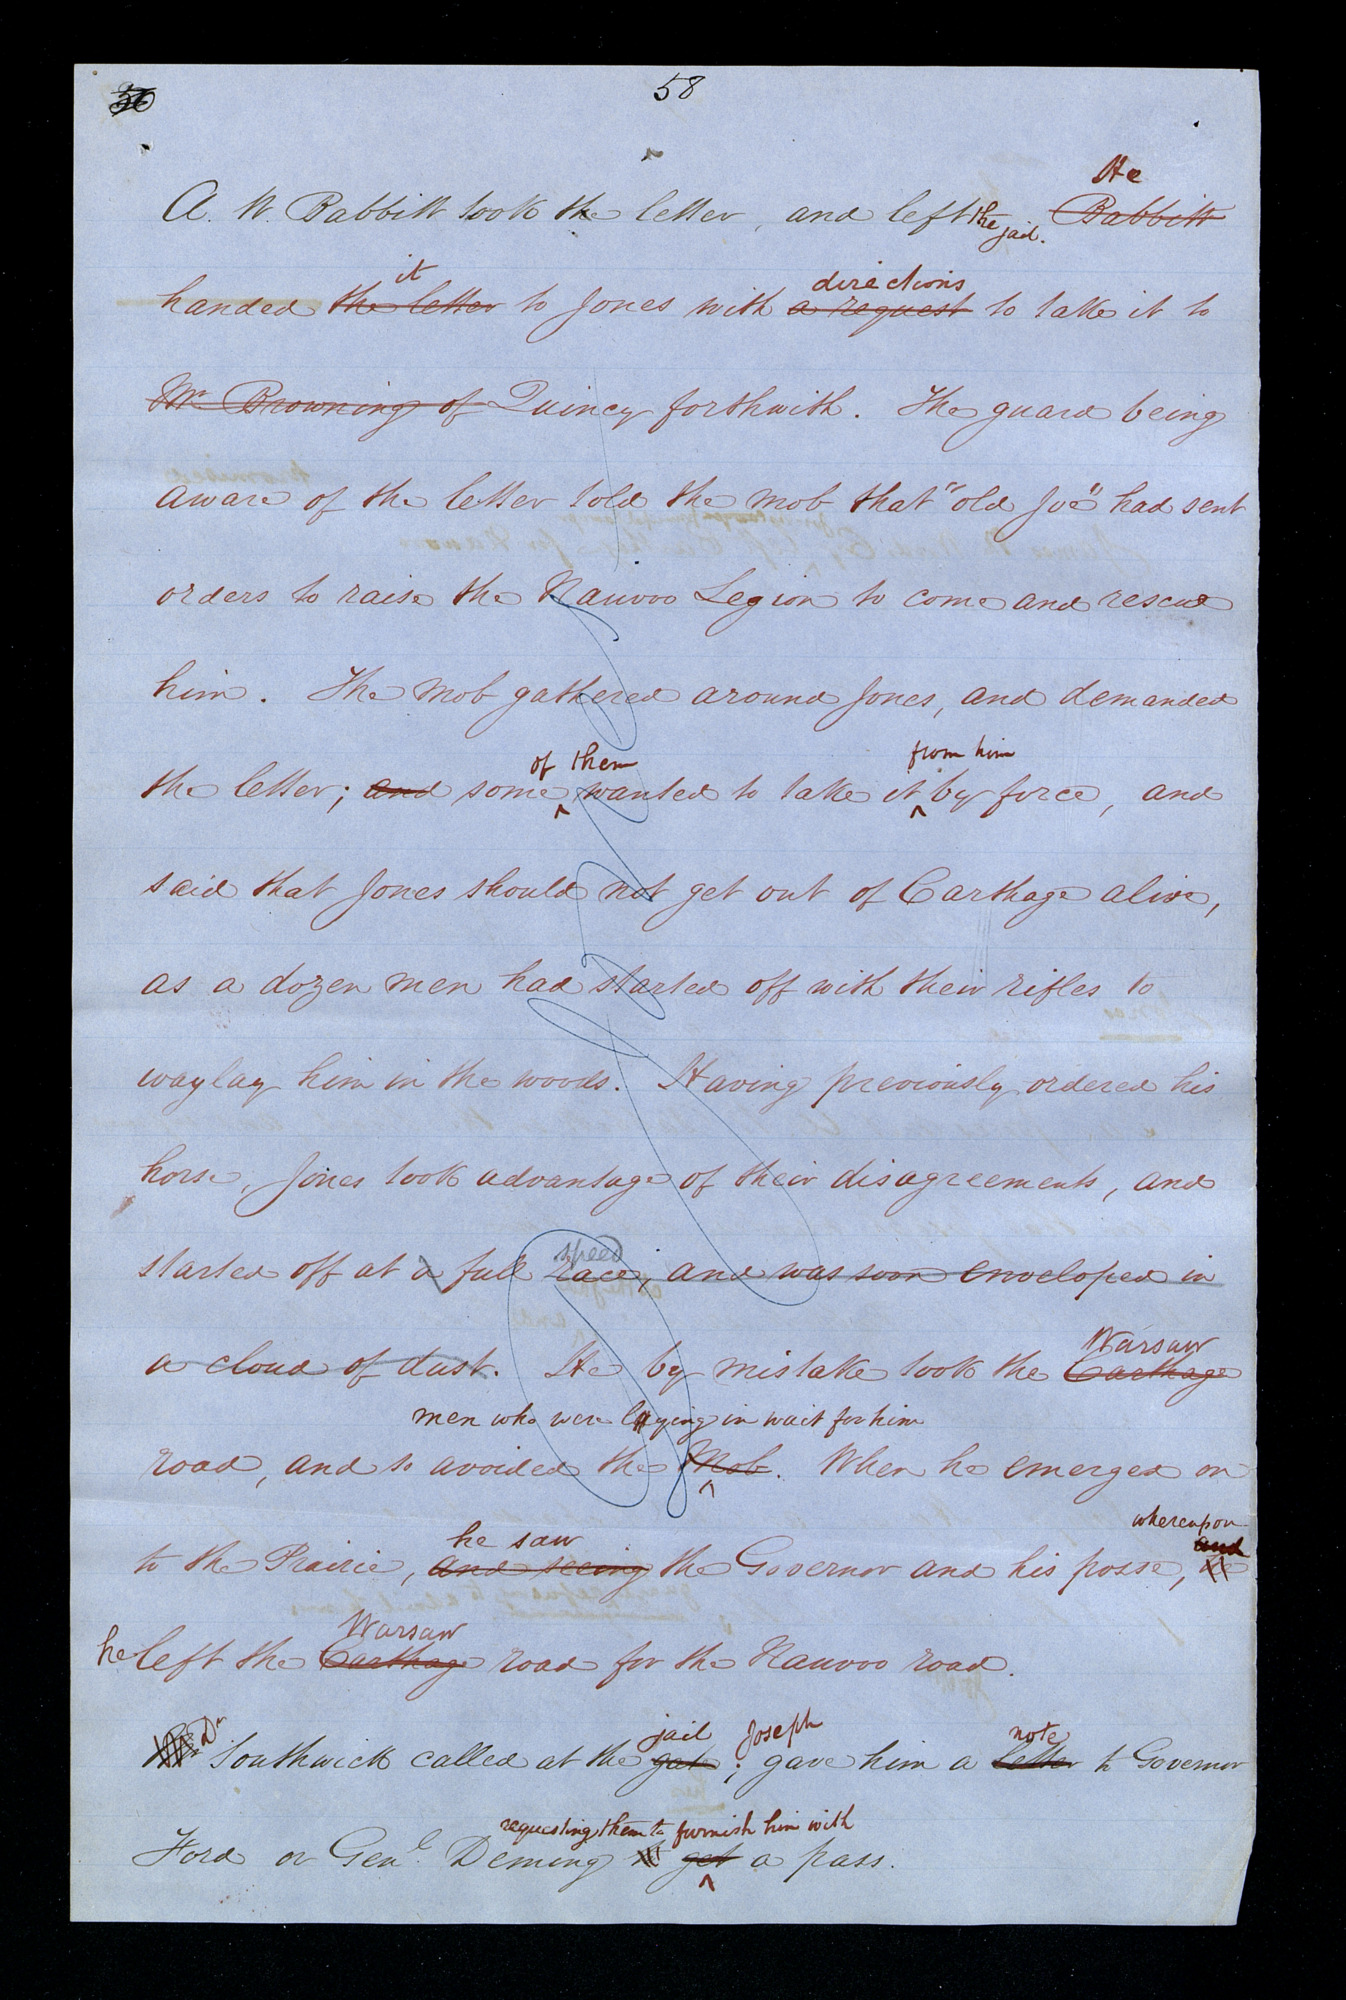 56 58
He
A. W. Babbitt took the letter, and left the jail. Babbitt
it directions
handed the letter to Jones with a request to take it to
Mr. Browning of Quincy forthwith. The guard being
aware of the letter told the mob that "old Joe" had sent
orders to raise the Nauvoo Legion to come and rescue
him. The mob gathered around Jones, and demanded
of them from him
the letter; and some ^ wanted to take it ^ by force, and
said that Jones should not get out of Carthage alive,
as a dozen men had started off with their rifles to
waylay him in the woods. Having previously ordered his
horse, Jones took advantage of their disagreements, and
speed
started off at a full race, and was soon enveloped in
Warsaw
a cloud of dust. He by mistake took the Carthage
men who were laying in wait for him
road, and so avoided the ^ Mob. When he emerged on
whereupon
he saw and
to the Prairie, and seeing the Governor and his posse, he
Warsaw
he left the Carthage road for the Nauvoo road.
Dr jail Joseph note
Southwick called at the gate; gave him a letter to Governor
requesting them to furnish him with
Ford or Genl. Deming to get ^ a pass.